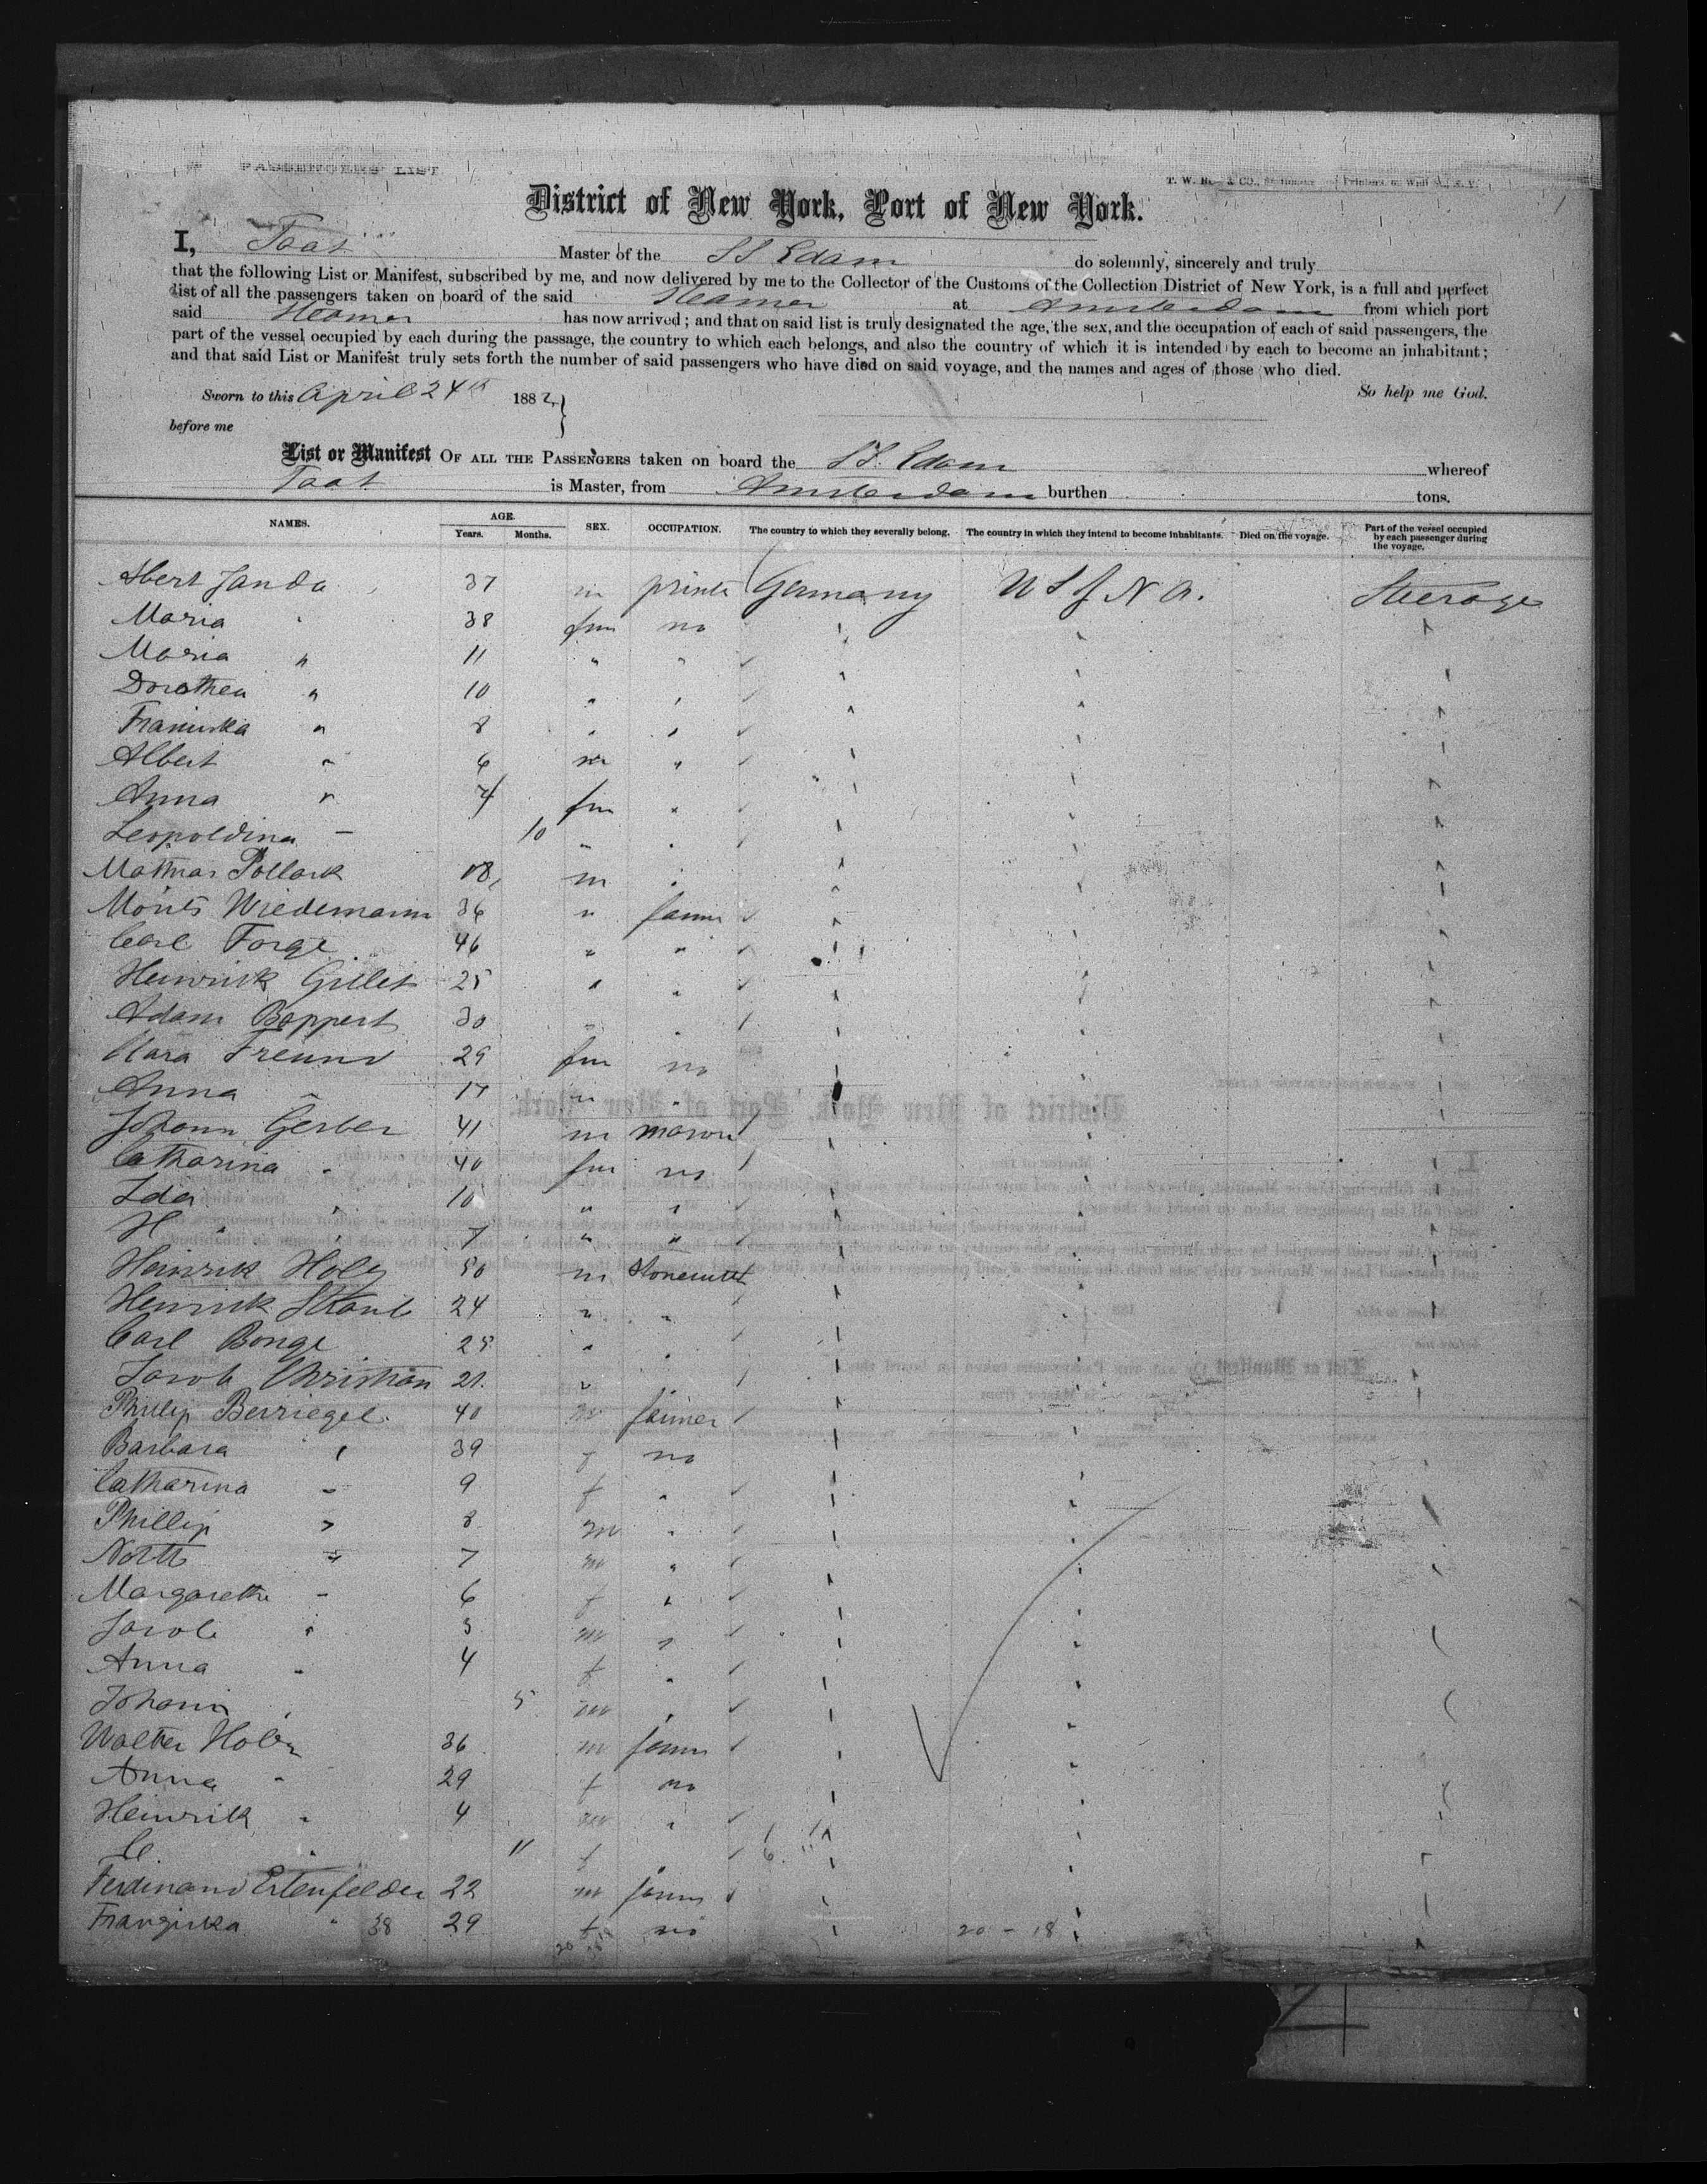 PASSENGERS LIST
T. W. & CO., Stationers Printers,
District of New York, Port of New York.
I, Taat Master of the SS Edam do solemnly, sincerely and truly
that the following List or Manifest, subscribed by me, and now delivered by me to the Collector of the Customs of the Collection District of New York, is a full and perfect
list of all the passengers taken on board of the said Steamer at Amsterdam from which port
said Steamer has now arrived; and that on said list is truly designated the age, the sex, and the occupation of each of said passengers, the
part of the vessel occupied by each during the passage, the country to which each belongs, and also the country of which it is intended by each to become an inhabitant;
and that said List or Manifest truly sets forth the number of said passengers who have died on said voyage, and the names and ages of those who died.
So help me God.
Sworn to this April 24th 1882
before me
List or Manifest OF ALL THE PASSENGERS taken on board the SS. Edam whereof
Taat is Master, from Amsterdam burthen tons.
NAMES. AGE. Years. Months. SEX. OCCUPATION. The country to which they severally belong. The country in which they intend to become inhabitants. Died on the voyage. Part of the vessel occupied by each passenger during the voyage.
Albert Janda 37 m printer Germany U S of N A. Steerage
Maria " 38 fm no
Maria " 11 " "
Dorothea " 10 " "
Franziska " 8 " "
Albert " 6 m "
Anna " 4 fm "
Leopoldina " 10 " "
Pollack 18 m "
Wiedemann 36 " farmer
Carl Forge 46 " "
Heinrich Gillet 25 " "
Adam Boppert 30 " "
Clara Freund 29 fm no
Anna " 17 " "
Johann Gerber 41 m mason
Catharina " 40 fm no
Ida " 10 " "
H " 7 " "
Heinrich Holz 50 m stonecutt
Heinrich 24 " "
Carl Bonge 25 " "
Jacob Christian 21. " "
Phillip Berriegel 40 m farmer
Barbara " 39 f no
Catharina " 9 f "
Phillip " 8 m "
" 7 m "
Margaretha " 6 f "
Jacob " 5 m "
Anna " 4 f "
Johann " 5 m "
Walter 36 m farmer
Anna " 29 f no
Heinrich " 4 m "
C. " 11 f "
Ferdinand Ertenfelder 22 m farmer
Franziska " 38 29 f no 20 - 18